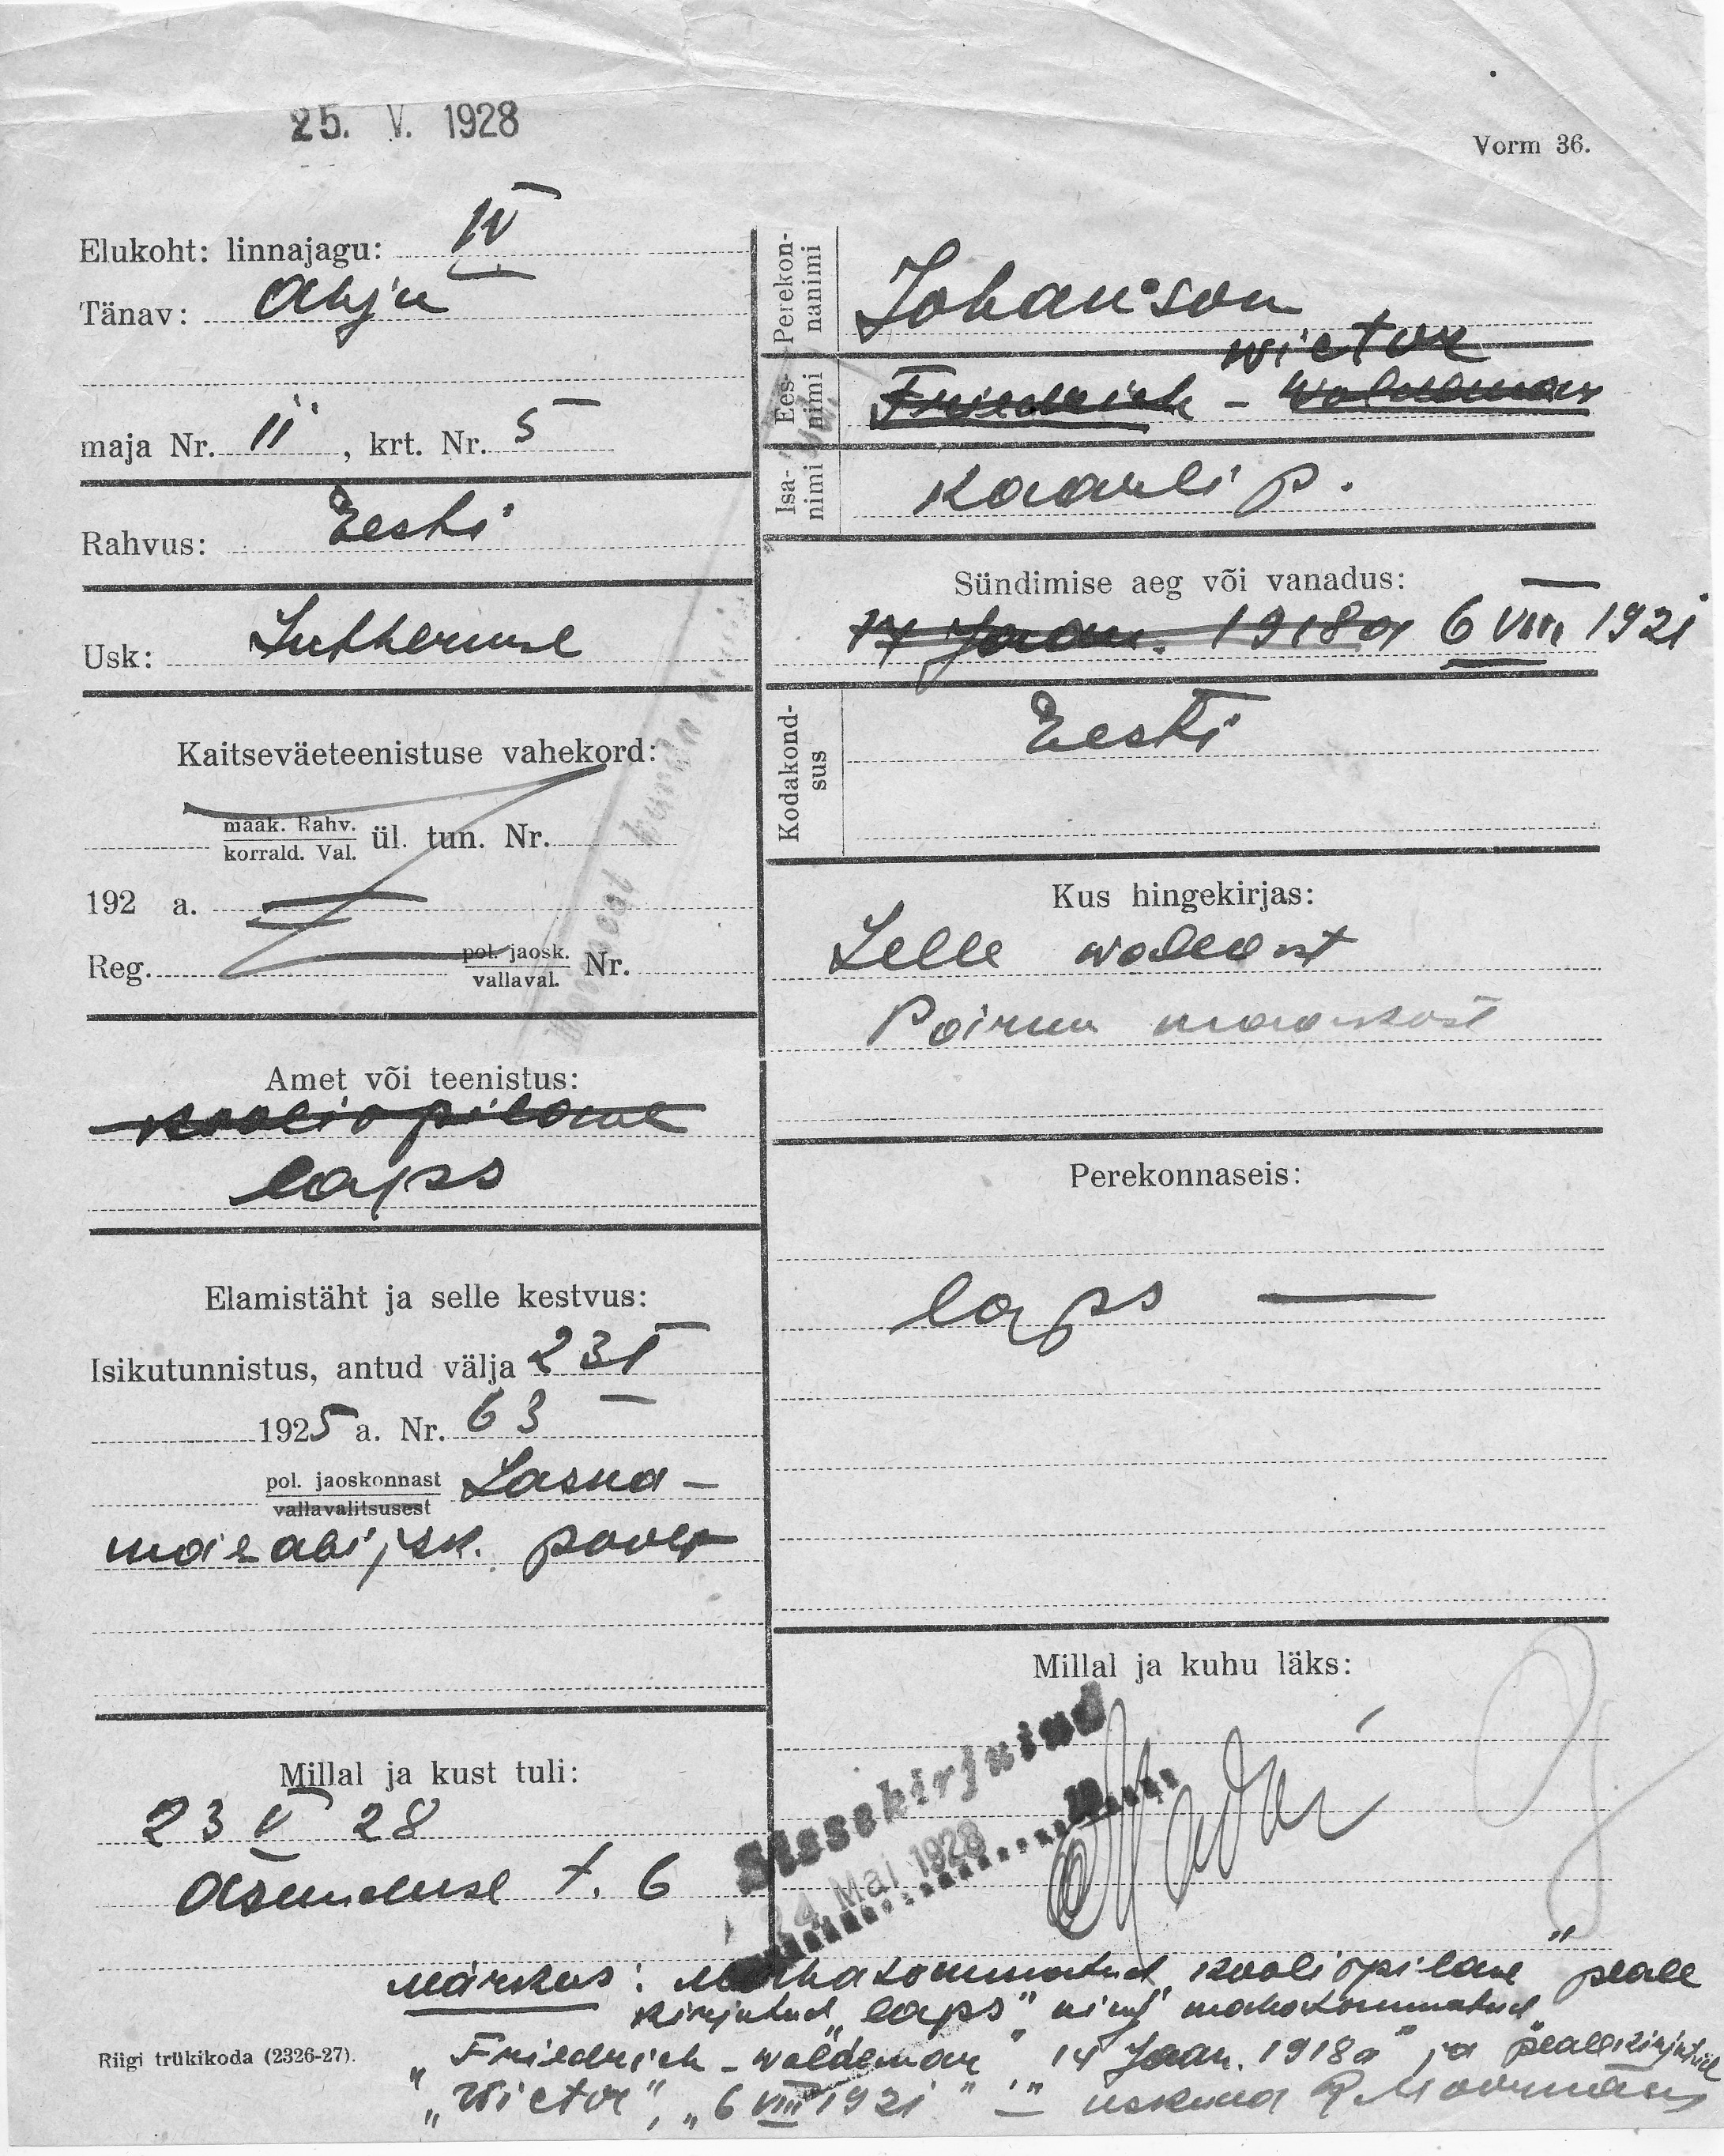 25. V. 1928
Vorm 36.
Elukoht: linnajagu: IV
Tänav: Ahju
maja Nr. 11, krt. Nr. 5
Rahvus: Eesti
Usk: Lutheruse
Kaitseväeteenistuse vahekord:
maak. Rahv.
korrald. Val. ül. tun. Nr.
192 a.
Reg. pol. jaosk.
vallaval. Nr.
Amet või teenistus:
kooliõpilane
laps
Elamistäht ja selle kestvus:
Isikutunnistus, antud välja 23 I
1925 a. Nr. 63
pol. jaoskonnast Lasna-
vallavalitsusest
mäe abi jsk. poolt
Millal ja kust tuli:
23 V 28
Asunduse t. 6
Perekon-
nanimi
Johanson
Wictor
Ees-
nimi
Friedrich - Woldemar
Isa-
nimi
Kaarli p.
Sündimise aeg või vanadus:
14 Jaan. 1918 a 6 VIII 1921
Kodakond-
sus
Eesti
Kus hingekirjas:
Lelle wallast
Pärnu maakost
Perekonnaseis:
laps —
Millal ja kuhu läks:
Sissekirjutud
24 Mai 1928
Märkus: Mahatõmmatud „kooliõpilane" peale
kirjutud „laps" ning mahatõmmatud
„Friedrich - Woldemar" „14 Jaan. 1918 a" ja pealekirjutud
„Wictor", „6 VIII 1921" uskuda
Riigi trükikoda (2326-27).